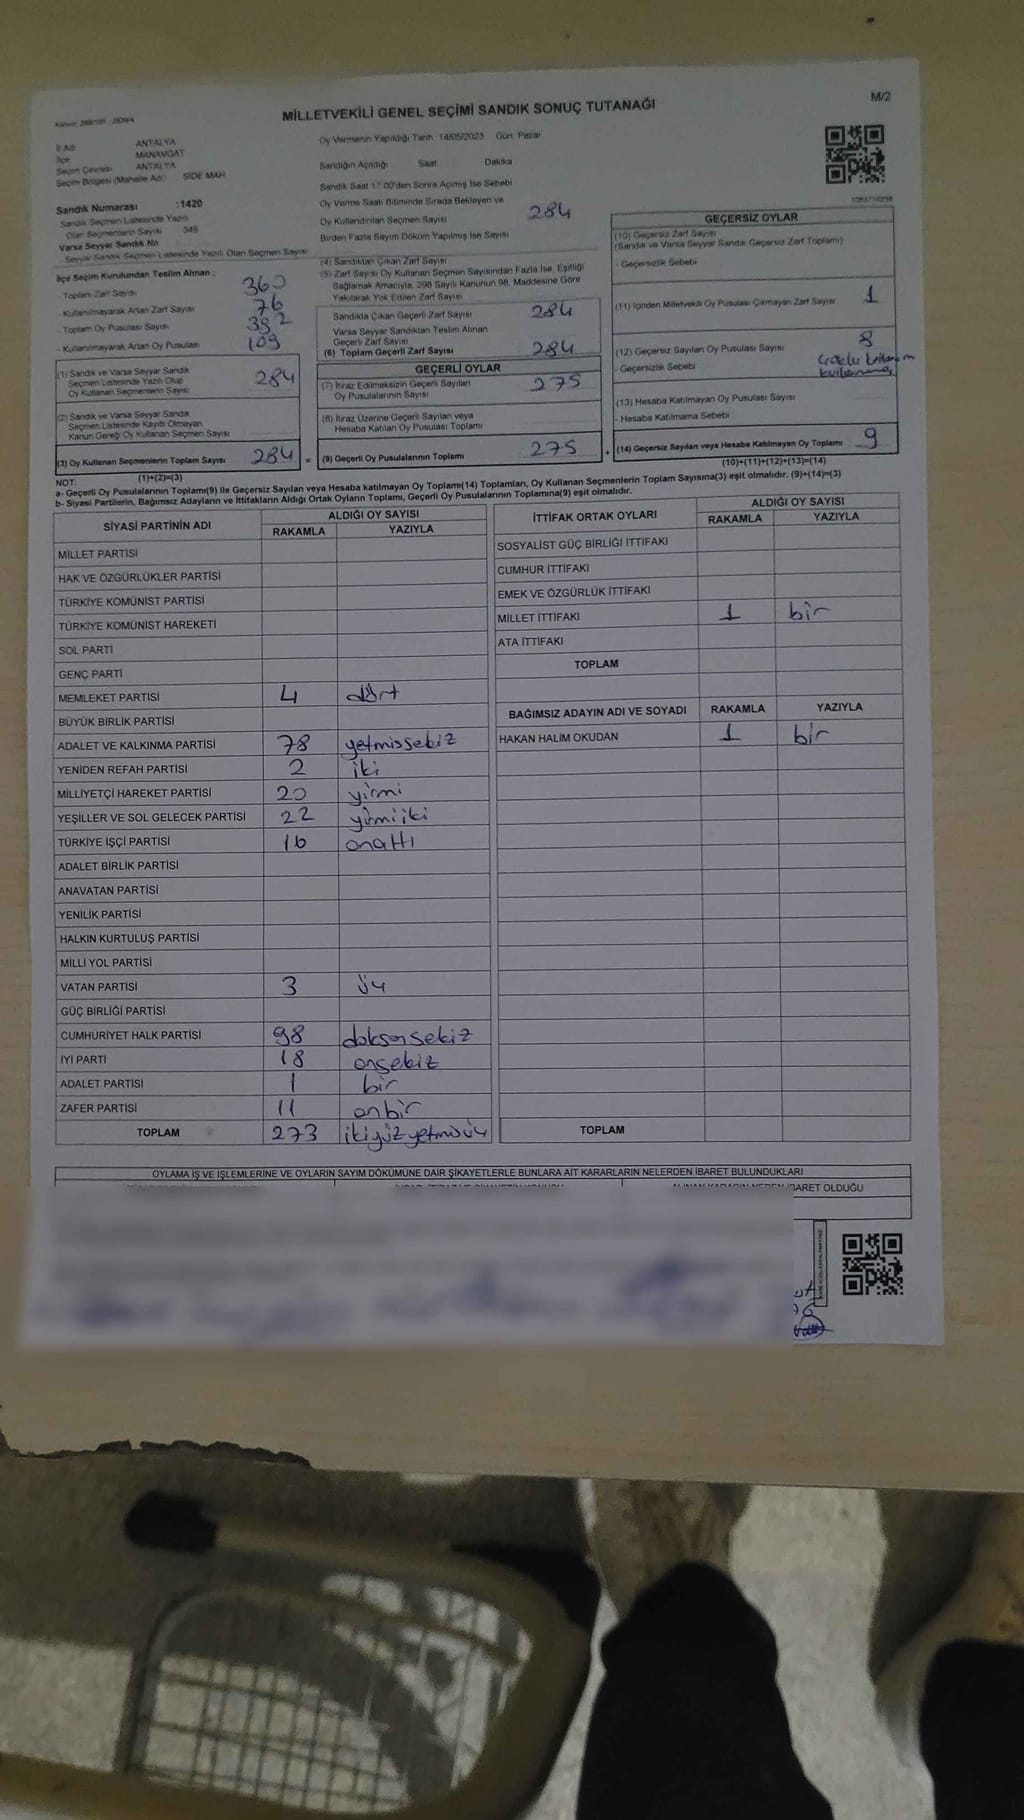 MİLLETVEKİLİ GENEL SEÇİMİ SANDIK SONUÇ TUTANAĞI
M/2
İl Adı ANTALYA
İlçe MANAVGAT
Seçim Çevresi ANTALYA
Seçim Bölgesi (Mahalle Adı) SİDE MAH
Sandık Numarası :1420
Sandık Seçmen Listesinde Yazılı
Olan Seçmenlerin Sayısı 349
Varsa Seyyar Sandık No
- Seyyar Sandık Seçmen Listesinde Yazılı Olan Seçmen Sayısı
Oy Vermenin Yapıldığı Tarih 14/05/2023 Gün Pazar
Sandığın Açıldığı Saat Dakika
Sandık Saat 17:00'den Sonra Açılmış İse Sebebi
Oy Verme Saati Bitiminde Sırada Bekleyen ve
Oy Kullandırılan Seçmen Sayısı 284
Birden Fazla Sayım Döküm Yapılmış İse Sayısı
İlçe Seçim Kurulundan Teslim Alınan :
Toplam Zarf Sayısı 360
- Kullanılmayarak Artan Zarf Sayısı 76
- Toplam Oy Pusulası Sayısı
- Kullanılmayarak Artan Oy Pusulası
(1) Sandık ve Varsa Seyyar Sandık
Seçmen Listesinde Yazılı Olup
Oy Kullanan Seçmenlerin Sayısı 284
(2) Sandık ve Varsa Seyyar Sandık
Seçmen Listesinde Kayıtlı Olmayan
Kanun Gereği Oy Kullanan Seçmen Sayısı
(3) Oy Kullanan Seçmenlerin Toplam Sayısı 284 =
(1)+(2)=(3)
(4) Sandıktan Çıkan Zarf Sayısı
(5) Zarf Sayısı Oy Kullanan Seçmen Sayısından Fazla İse, Eşitliği
Sağlamak Amacıyla, 298 Sayılı Kanunun 98. Maddesine Göre
Yakılarak Yok Edilen Zarf Sayısı
Sandıkta Çıkan Geçerli Zarf Sayısı 284
Varsa Seyyar Sandıktan Teslim Alınan
Geçerli Zarf Sayısı
(6) Toplam Geçerli Zarf Sayısı 284
GEÇERLİ OYLAR
(7) İtiraz Edilmeksizin Geçerli Sayılan
Oy Pusulalarının Sayısı 275
(8) İtiraz Üzerine Geçerli Sayılan veya
Hesaba Katılan Oy Pusulası Toplamı
(9) Geçerli Oy Pusulalarının Toplamı 275 +
GEÇERSİZ OYLAR
(10) Geçersiz Zarf Sayısı
(Sandık ve Varsa Seyyar Sandık Geçersiz Zarf Toplamı)
- Geçersizlik Sebebi
(11) İçinden Milletvekili Oy Pusulası Çıkmayan Zarf Sayısı 1
(12) Geçersiz Sayılan Oy Pusulası Sayısı 8
- Geçersizlik Sebebi
(13) Hesaba Katılmayan Oy Pusulası Sayısı
- Hesaba Katılmama Sebebi
(14) Geçersiz Sayılan veya Hesaba Katılmayan Oy Toplamı 9
(10)+(11)+(12)+(13)=(14)
NOT:
a- Geçerli Oy Pusulalarının Toplamı(9) ile Geçersiz Sayılan veya Hesaba Katılmayan Oy Toplamı(14) Toplamları, Oy Kullanan Seçmenlerin Toplam Sayısına(3) eşit olmalıdır. (9)+(14)=(3)
b- Siyasi Partilerin, Bağımsız Adayların ve İttifakların Aldığı Ortak Oyların Toplamı, Geçerli Oy Pusulalarının Toplamına(9) eşit olmalıdır.
SİYASİ PARTİNİN ADI ALDIĞI OY SAYISI
RAKAMLA YAZIYLA
MİLLET PARTİSİ
HAK VE ÖZGÜRLÜKLER PARTİSİ
TÜRKİYE KOMÜNİST PARTİSİ
TÜRKİYE KOMÜNİST HAREKETİ
SOL PARTİ
GENÇ PARTİ
MEMLEKET PARTİSİ 4 dört
BÜYÜK BİRLİK PARTİSİ
ADALET VE KALKINMA PARTİSİ 78 yetmişsekiz
YENİDEN REFAH PARTİSİ 2 iki
MİLLİYETÇİ HAREKET PARTİSİ 20 yirmi
YEŞİLLER VE SOL GELECEK PARTİSİ 22 yirmiiki
TÜRKİYE İŞÇİ PARTİSİ 16 onaltı
ADALET BİRLİK PARTİSİ
ANAVATAN PARTİSİ
YENİLİK PARTİSİ
HALKIN KURTULUŞ PARTİSİ
MİLLİ YOL PARTİSİ
VATAN PARTİSİ 3 üç
GÜÇ BİRLİĞİ PARTİSİ
CUMHURİYET HALK PARTİSİ 98 doksansekiz
İYİ PARTİ 18 onsekiz
ADALET PARTİSİ 1 bir
ZAFER PARTİSİ 11 onbir
TOPLAM 273 ikiyüzyetmişüç
İTTİFAK ORTAK OYLARI ALDIĞI OY SAYISI
RAKAMLA YAZIYLA
SOSYALİST GÜÇ BİRLİĞİ İTTİFAKI
CUMHUR İTTİFAKI
EMEK VE ÖZGÜRLÜK İTTİFAKI
MİLLET İTTİFAKI 1 bir
ATA İTTİFAKI
TOPLAM
BAĞIMSIZ ADAYIN ADI VE SOYADI RAKAMLA YAZIYLA
HAKAN HALİM OKUDAN 1 bir
TOPLAM
OYLAMA İŞ VE İŞLEMLERİNE VE OYLARIN SAYIM DÖKÜMÜNE DAİR ŞİKAYETLERLE BUNLARA AİT KARARLARIN NELERDEN İBARET BULUNDUKLARI
İBARET OLDUĞU